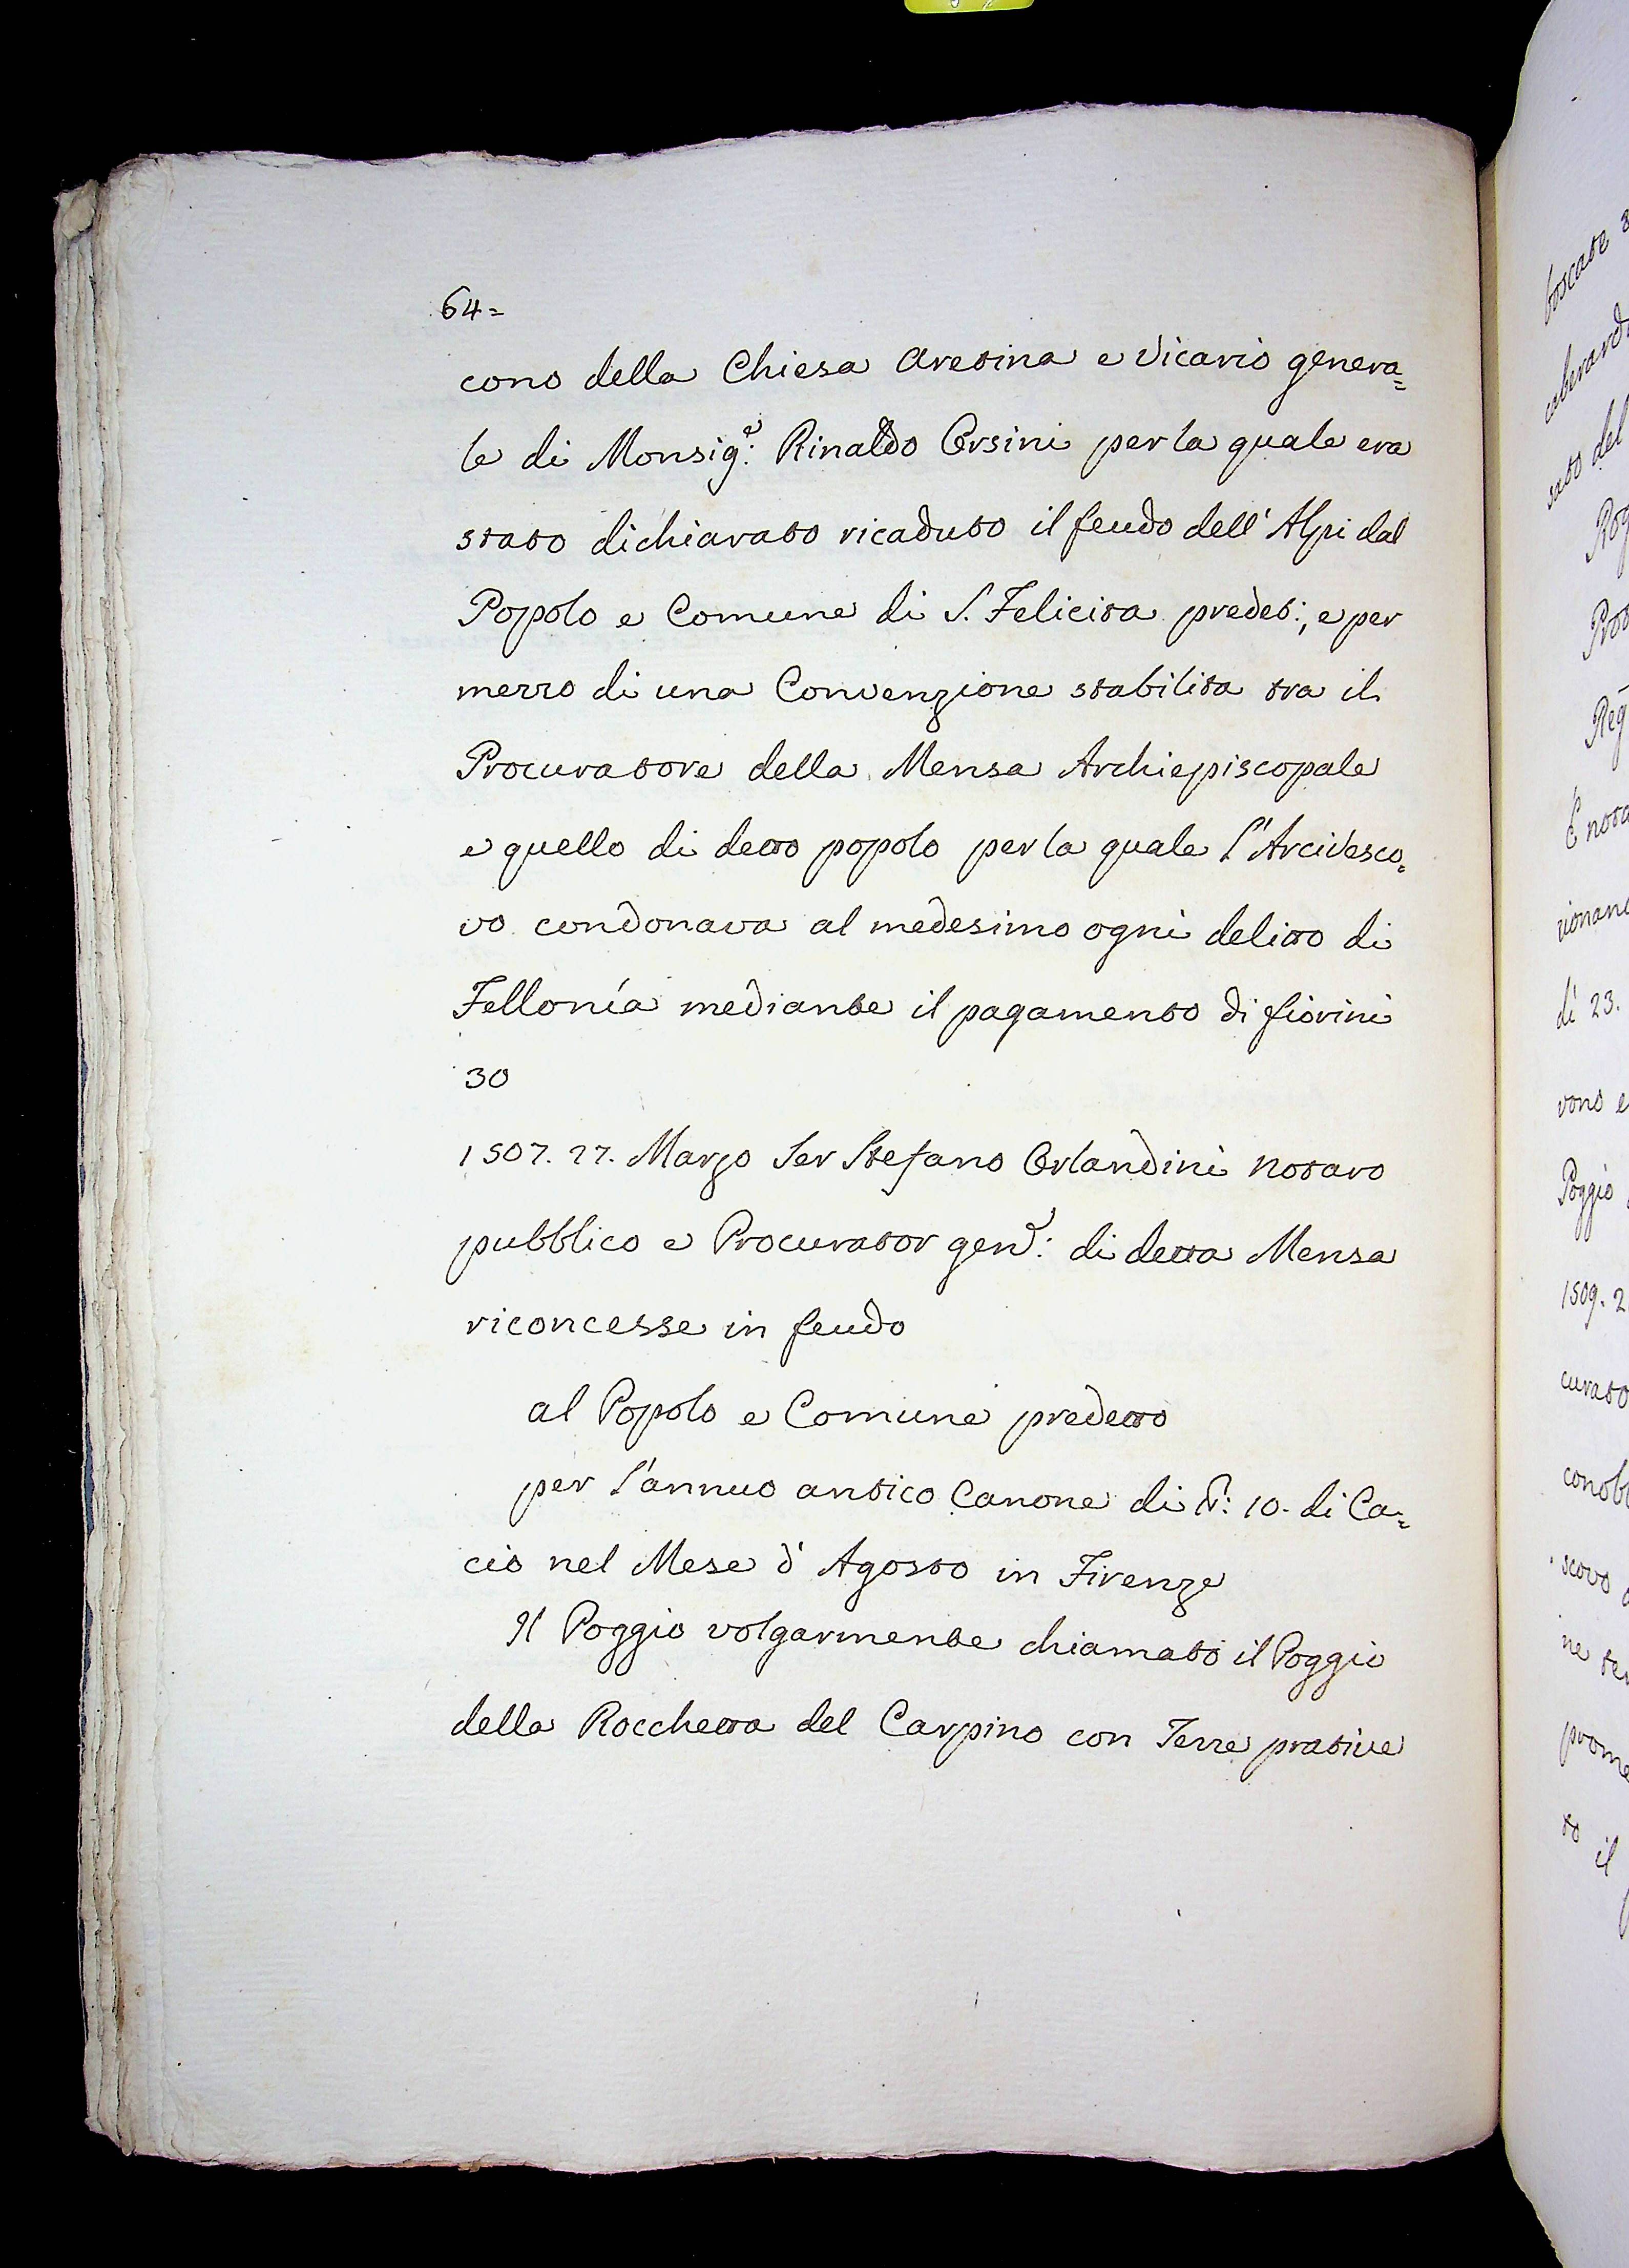 64=
cono della Chiesa Aretina e Vicario genera=
le di Monsig.e: Rinaldo Orsini per la quale era
stato dichiarato ricaduto il feudo dell' Alpi dal
Popolo e Comune di S. Felicita predet:, e per
mezzo di una Convenzione stabilita tra il
Procuratore della Mensa Archiepiscopale
e quello di detto popolo per la quale l'Arcivesco=
vo condonava al medesimo ogni delitto di
Fellonía mediante il pagamento di fiorini
30
1507. 27. Marzo Ser Stefano Orlandini Notaro
pubblico e Procurator gen.e: di detta Mensa
riconcesse in feudo
al Popolo e Comune predetto
per l'annuo antico Canone di 10. di Ca=
cio nel Mese d' Agosto in Firenze
Il Poggio volgarmente chiamato il Poggio
della Rocchetta del Carpino con Terre prative
boscate
del
dì 23.
Poggio
1509. 2
il